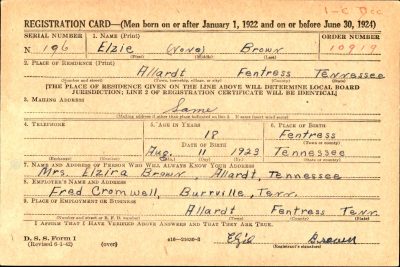 1-C Dcc
REGISTRATION CARD—(Men born on or after January 1, 1922 and on or before June 30, 1924)
SERIAL NUMBER 1. NAME (Print) ORDER NUMBER
N 196 Elzie (none) Brown 10919
(First) (Middle) (Last)
2. PLACE OF RESIDENCE (Print)
Allardt Fentress Tennessee
(Number and street) (Town, township, village, or city) (County) (State)
[THE PLACE OF RESIDENCE GIVEN ON THE LINE ABOVE WILL DETERMINE LOCAL BOARD
JURISDICTION; LINE 2 OF REGISTRATION CERTIFICATE WILL BE IDENTICAL]
3. MAILING ADDRESS
Same
(Mailing address if other than place indicated on line 2. If same insert word same)
4. TELEPHONE 5. AGE IN YEARS 6. PLACE OF BIRTH
18 Fentress
DATE OF BIRTH (Town or county)
Aug. 11 1923 Tennessee
(Exchange) (Number) (Mo.) (Day) (Yr.) (State or country)
7. NAME AND ADDRESS OF PERSON WHO WILL ALWAYS KNOW YOUR ADDRESS
Mrs. Elzira Brown Allardt, Tennessee
8. EMPLOYER'S NAME AND ADDRESS
Fred Cromwell, Burrville, Tenn.
9. PLACE OF EMPLOYMENT OR BUSINESS
Allardt Fentress Tenn.
(Number and street or R. F. D. number) (Town) (County) (State)
I AFFIRM THAT I HAVE VERIFIED ABOVE ANSWERS AND THAT THEY ARE TRUE.
D. S. S. Form 1
(Revised 6-1-42) (over) Elzie Brown
(Registrant's signature)